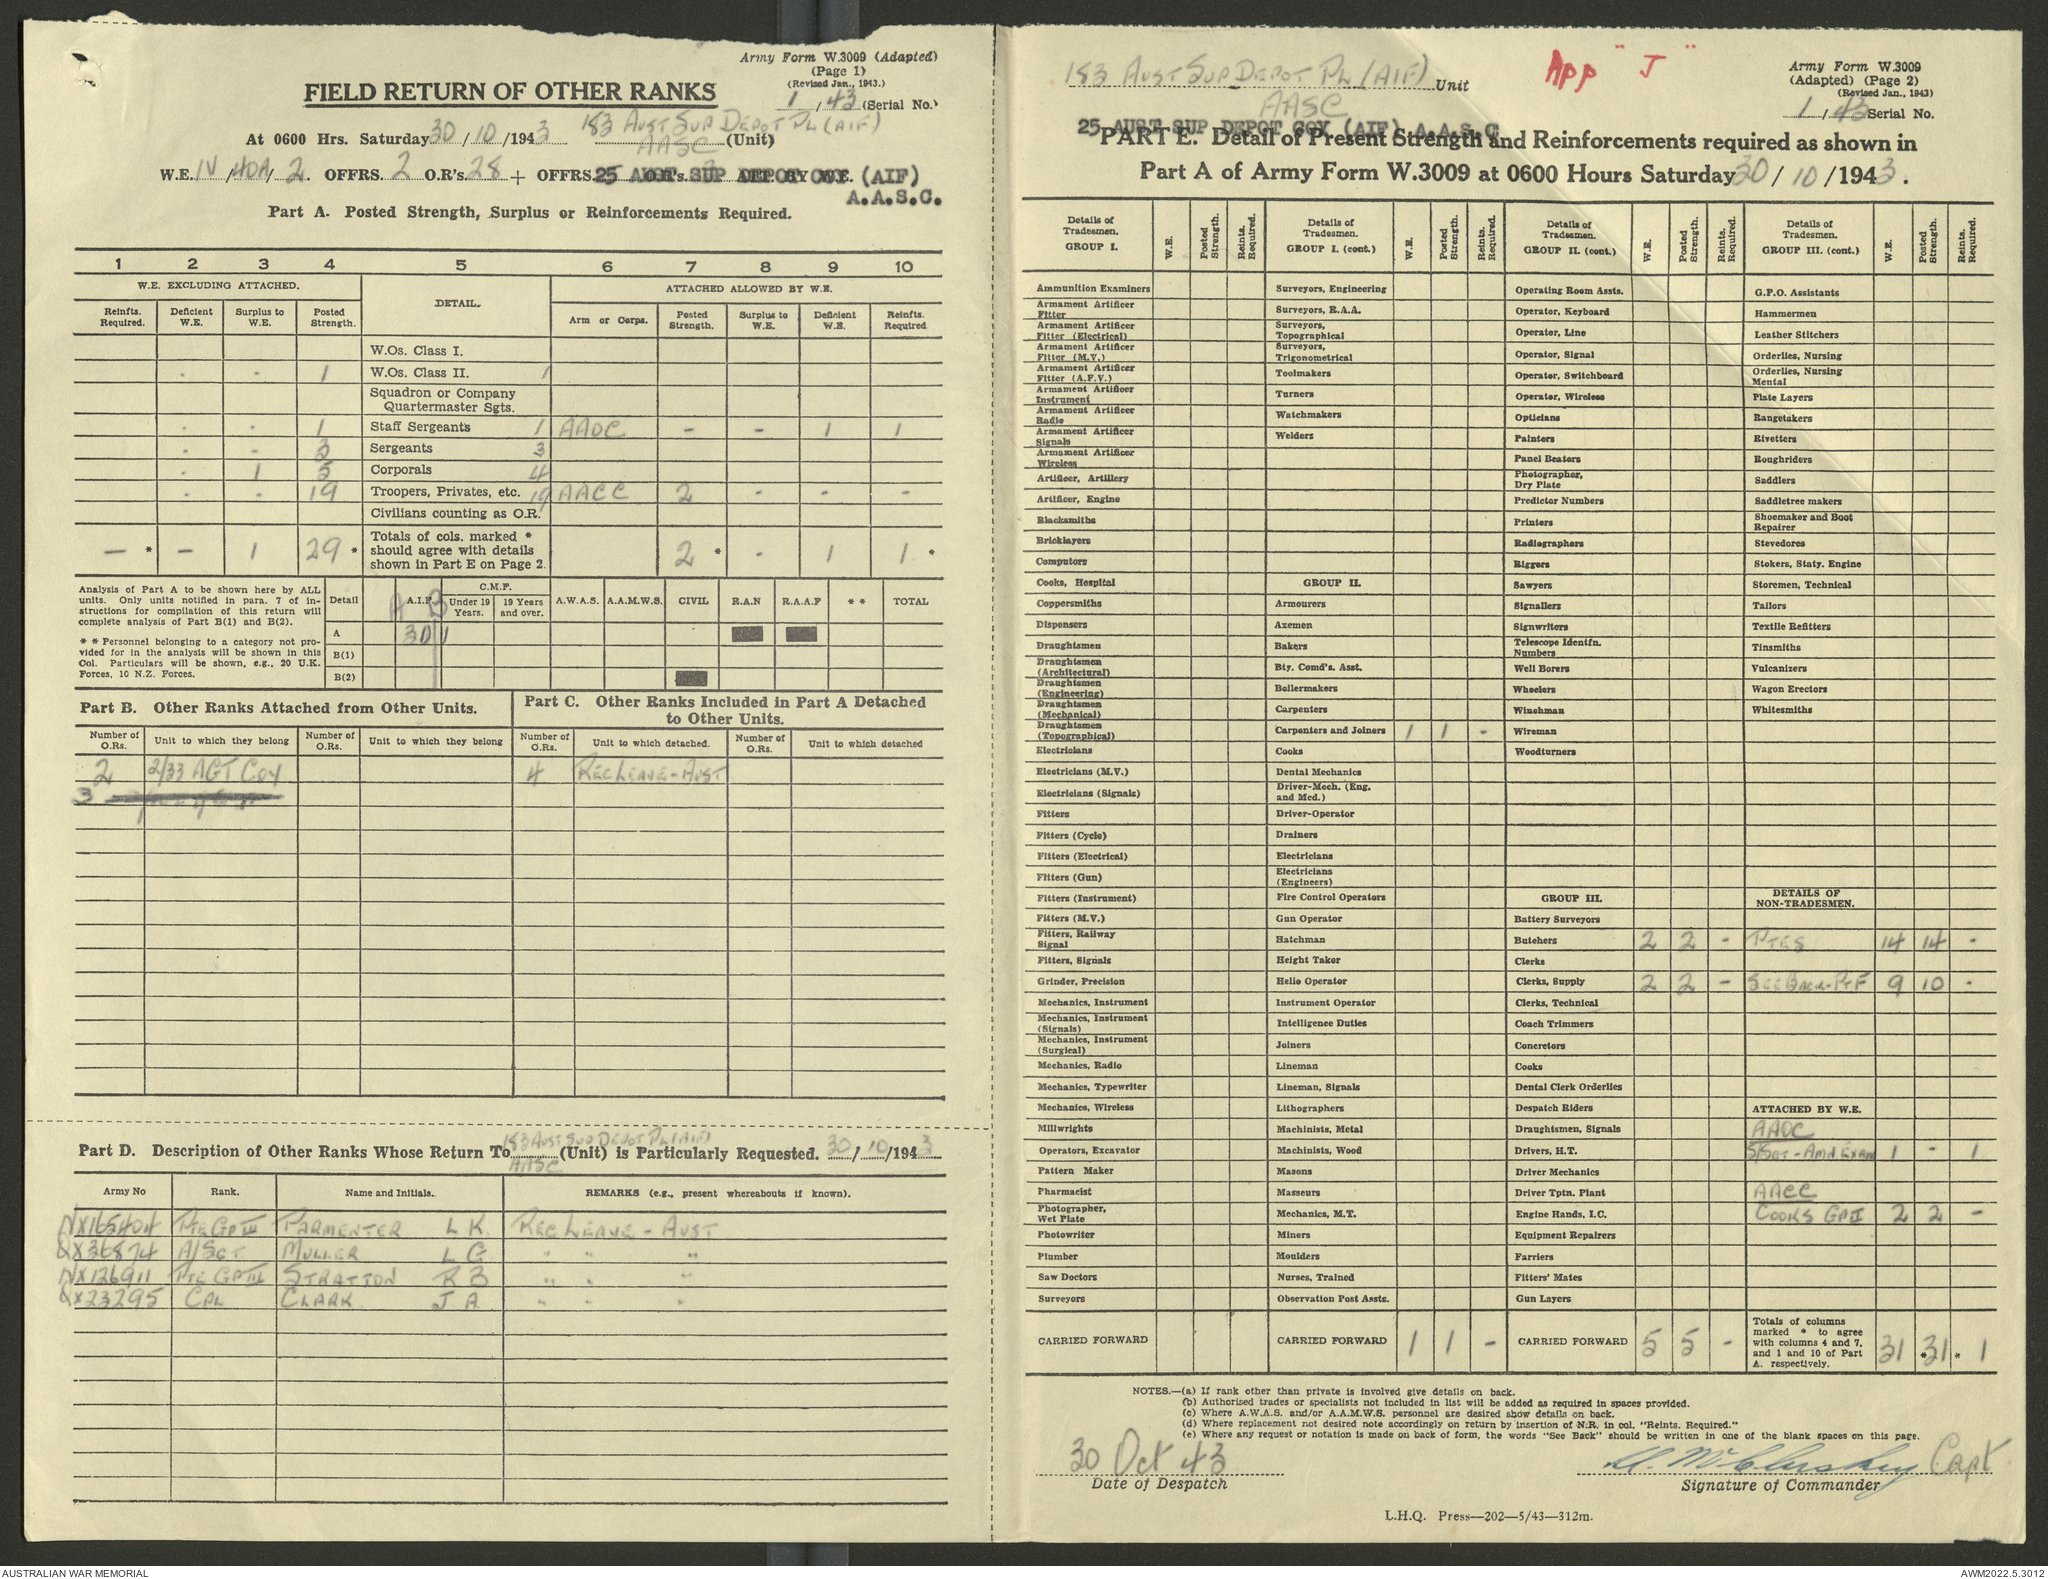 Army Form W.3009 (Adapted)
(Page 1)
(Revised Jan., 1943.)
FIELD RETURN OF OTHER RANKS
1/43 (Serial No.)
At 0600 Hrs. Saturday 30/10/1943 183 AUST SUP DEPOT PL (AIF) AASC (Unit)
W.E. IV/40A/2. OFFRS. 2 O.R's. 28 + OFFRS. O.R's.
25 AUST SUP DEPOT COY (AIF)
A.A.S.C.
Part A. Posted Strength, Surplus or Reinforcements Required.
1 2 3 4 5 6 7 8 9 10
W.E. EXCLUDING ATTACHED. DETAIL. ATTACHED ALLOWED BY W.E.
Reinfts. Required. Deficient W.E. Surplus to W.E. Posted Strength. Arm or Corps. Posted Strength. Surplus to W.E. Deficient W.E. Reinfts. Required
W.Os. Class I.
- - 1 W.Os. Class II. 1
Squadron or Company Quartermaster Sgts.
- - 1 Staff Sergeants 1 AAOC - - 1 1
- - 3 Sergeants 3
- 1 5 Corporals 4
- - 19 Troopers, Privates, etc. 19 AACC 2 - - -
Civilians counting as O.R.
- * - 1 29 * Totals of cols. marked * should agree with details shown in Part E on Page 2. 2 * - 1 1 *
Analysis of Part A to be shown here by ALL units. Only units notified in para. 7 of instructions for compilation of this return will complete analysis of Part B(1) and B(2).
* * Personnel belonging to a category not provided for in the analysis will be shown in this Col. Particulars will be shown, e.g., 20 U.K. Forces, 10 N.Z. Forces.
Detail A.I.F. A B C.M.F. Under 19 Years. 19 Years and over. A.W.A.S. A.A.M.W.S. CIVIL R.A.N R.A.A.F * * TOTAL
A 30 1
B(1)
B(2)
Part B. Other Ranks Attached from Other Units.
Part C. Other Ranks Included in Part A Detached to Other Units.
Number of O.Rs. Unit to which they belong Number of O.Rs. Unit to which they belong Number of O.Rs. Unit to which detached. Number of O.Rs. Unit to which detached
2 2/33 AGT COY 4 REC LEAVE - AUST
3
Part D. Description of Other Ranks Whose Return To 183 AUST SUP DEPOT PL (AIF) AASC (Unit) is Particularly Requested. 30/10/1943
Army No Rank. Name and Initials. REMARKS (e.g., present whereabouts if known).
NX165404 PTE GP III PARMENTER L K REC LEAVE - AUST
QX36874 A/SGT MULLER L G " " "
NX126911 PTE GP III STRATTON R B " " "
QX23295 CPL CLARK J A " " "
183 AUST SUP DEPOT PL (AIF) Unit
AASC
App "J"
Army Form W.3009
(Adapted) (Page 2)
(Revised Jan., 1943)
1/43 Serial No.
25 AUST SUP DEPOT COY (AIF) A.A.S.C
PART E. Detail of Present Strength and Reinforcements required as shown in
Part A of Army Form W.3009 at 0600 Hours Saturday 30/10/1943.
Details of Tradesmen. GROUP I. W.E. Posted Strength. Reints. Required.
Ammunition Examiners
Armament Artificer Fitter
Armament Artificer Fitter (Electrical)
Armament Artificer Fitter (M.V.)
Armament Artificer Fitter (A.F.V.)
Armament Artificer Instrument
Armament Artificer Radio
Armament Artificer Signals
Armament Artificer Wireless
Artificer, Artillery
Artificer, Engine
Blacksmiths
Bricklayers
Computors
Cooks, Hospital
Coppersmiths
Dispensers
Draughtsmen
Draughtsmen (Architectural)
Draughtsmen (Engineering)
Draughtsmen (Mechanical)
Draughtsmen (Topographical)
Electricians
Electricians (M.V.)
Electricians (Signals)
Fitters
Fitters (Cycle)
Fitters (Electrical)
Fitters (Gun)
Fitters (Instrument)
Fitters (M.V.)
Fitters, Railway Signal
Fitters, Signals
Grinder, Precision
Mechanics, Instrument
Mechanics, Instrument (Signals)
Mechanics, Instrument (Surgical)
Mechanics, Radio
Mechanics, Typewriter
Mechanics, Wireless
Millwrights
Operators, Excavator
Pattern Maker
Pharmacist
Photographer, Wet Plate
Photowriter
Plumber
Saw Doctors
Surveyors
CARRIED FORWARD
Details of Tradesmen. GROUP I. (cont.) W.E. Posted Strength. Reints. Required.
Surveyors, Engineering
Surveyors, R.A.A.
Surveyors, Topographical
Surveyors, Trigonometrical
Toolmakers
Turners
Watchmakers
Welders
GROUP II.
Armourers
Axemen
Bakers
Bty. Comd's. Asst.
Boilermakers
Carpenters
Carpenters and Joiners 1 1 -
Cooks
Dental Mechanics
Driver-Mech. (Eng. and Med.)
Driver-Operator
Drainers
Electricians
Electricians (Engineers)
Fire Control Operators
Gun Operator
Hatchman
Height Taker
Helio Operator
Instrument Operator
Intelligence Duties
Joiners
Lineman
Lineman, Signals
Lithographers
Machinists, Metal
Machinists, Wood
Masons
Masseurs
Mechanics, M.T.
Miners
Moulders
Nurses, Trained
Observation Post Assts.
CARRIED FORWARD 1 1 -
Details of Tradesmen. GROUP II. (cont.) W.E. Posted Strength. Reints. Required.
Operating Room Assts.
Operator, Keyboard
Operator, Line
Operator, Signal
Operator, Switchboard
Operator, Wireless
Opticians
Painters
Panel Beaters
Photographer, Dry Plate
Predictor Numbers
Printers
Radiographers
Riggers
Sawyers
Signallers
Signwriters
Telescope Identfn. Numbers
Well Borers
Wheelers
Winchman
Wireman
Woodturners
GROUP III.
Battery Surveyors
Butchers 2 2 -
Clerks
Clerks, Supply 2 2 -
Clerks, Technical
Coach Trimmers
Concretors
Cooks
Dental Clerk Orderlies
Despatch Riders
Draughtsmen, Signals
Drivers, H.T.
Driver Mechanics
Driver Tptn. Plant
Engine Hands, I.C.
Equipment Repairers
Farriers
Fitters' Mates
Gun Layers
CARRIED FORWARD 5 5 -
Details of Tradesmen. GROUP III. (cont.) W.E. Posted Strength. Reints. Required.
G.P.O. Assistants
Hammermen
Leather Stitchers
Orderlies, Nursing
Orderlies, Nursing Mental
Plate Layers
Rangetakers
Rivetters
Roughriders
Saddlers
Saddletree makers
Shoemaker and Boot Repairer
Stevedores
Stokers, Staty. Engine
Storemen, Technical
Tailors
Textile Refitters
Tinsmiths
Vulcanizers
Wagon Erectors
Whitesmiths
DETAILS OF NON-TRADESMEN.
PTES 14 14 -
SEE BACK - 9 10 -
ATTACHED BY W.E.
AAOC
S/SGT - AMN EXAM 1 - 1
AACC
COOKS GP II 2 2 -
Totals of columns marked * to agree with columns 4 and 7, and 1 and 10 of Part A. respectively. 31 *31 * 1
NOTES.—(a) If rank other than private is involved give details on back.
(b) Authorised trades or specialists not included in list will be added as required in spaces provided.
(c) Where A.W.A.S. and/or A.A.M.W.S. personnel are desired show details on back.
(d) Where replacement not desired note accordingly on return by insertion of N.R. in col. "Reints. Required."
(e) Where any request or notation is made on back of form, the words "See Back" should be written in one of the blank spaces on this page.
30 Oct 43
Date of Despatch
McCluskey Capt
Signature of Commander
L.H.Q. Press—202—5/43—312m.
AUSTRALIAN WAR MEMORIAL
AWM2022.5.3012